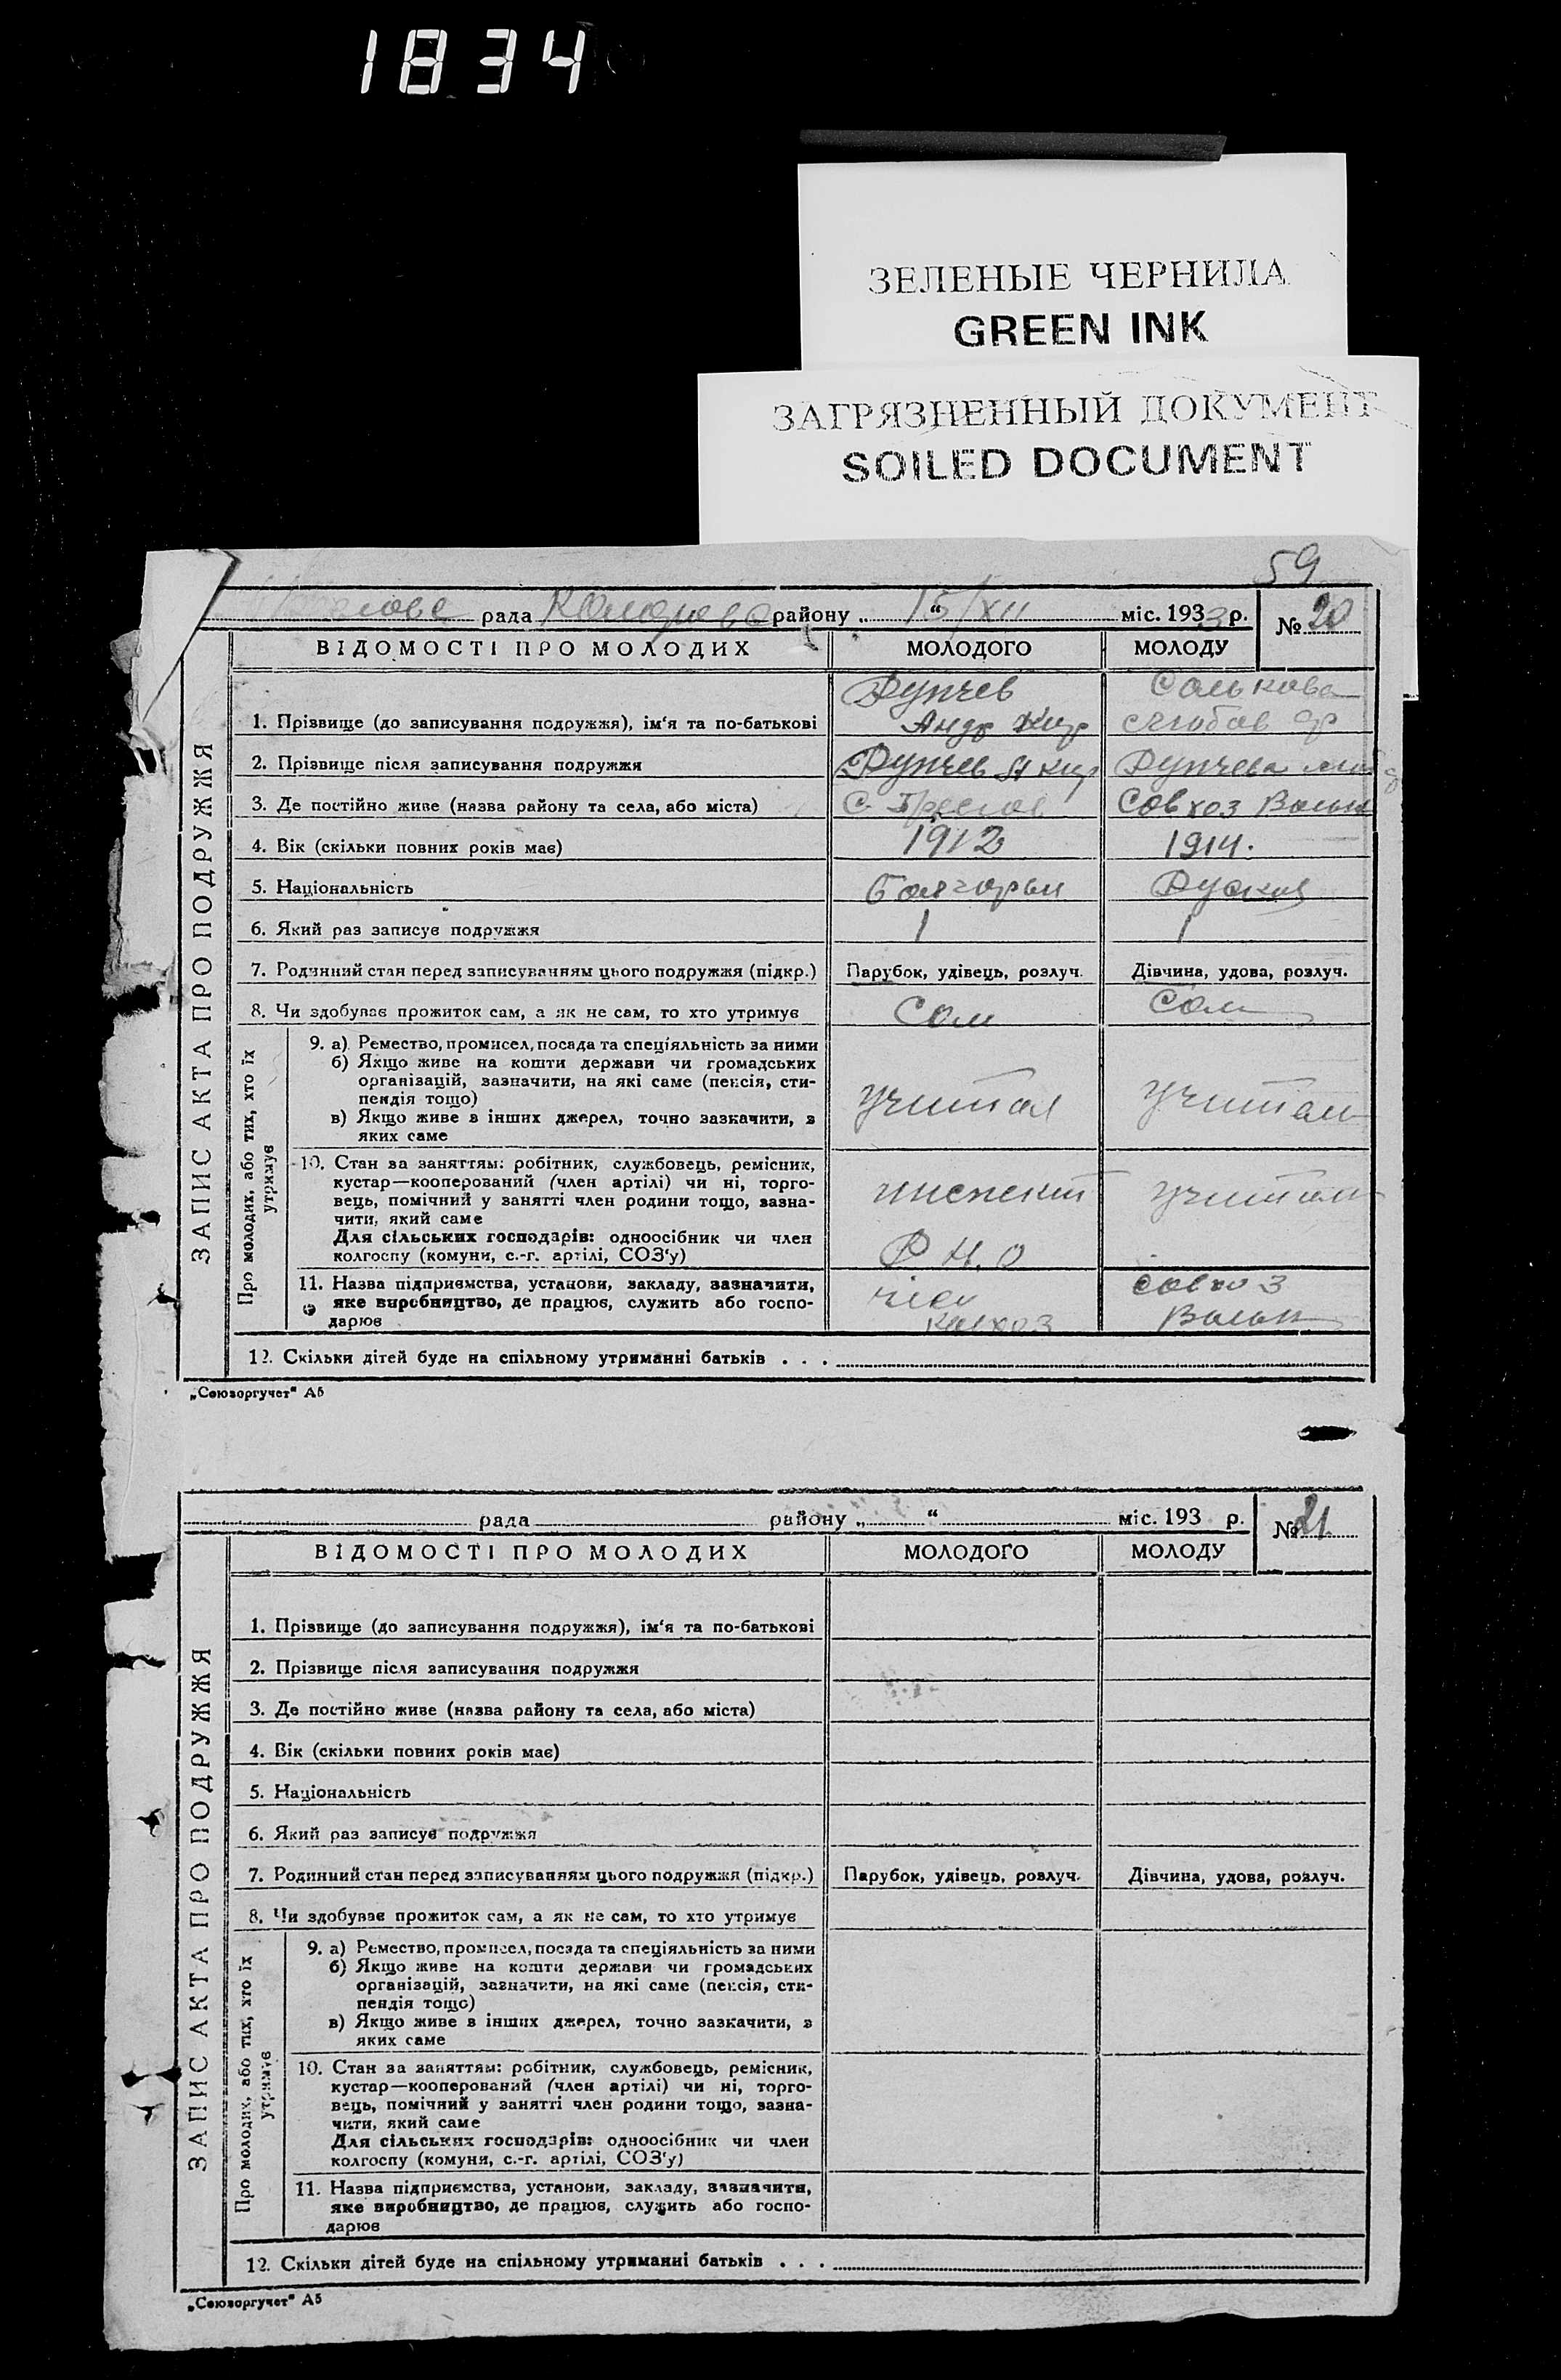 1834
ЗЕЛЕНЫЕ ЧЕРНИЛА
GREEN INK
ЗАГРЯЗНЕННЫЙ ДОКУМЕНТ
SOILED DOCUMENT
59
рада району „ 15/XII “ міс. 1933 р. № 20
ВІДОМОСТІ ПРО МОЛОДИХ МОЛОДОГО МОЛОДУ
ЗАПИС АКТА ПРО ПОДРУЖЖЯ
Рупчев
1. Прізвище (до записування подружжя), ім'я та по-батькові Андр Кир
2. Прізвище після записування подружжя Рупчев А Кир Рупчева
3. Де постійно живе (назва району та села, або міста) С. Совхоз
4. Вік (скільки повних років має) 1912 1914.
5. Національність
6. Який раз записує подружжя 1 1
7. Родинний стан перед записуванням цього подружжя (підкр.) Парубок, удівець, розлуч. Дівчина, удова, розлуч.
8. Чи здобуває прожиток сам, а як не сам, то хто утримує Сам Сам
Про молодих, або тих, хто їх утримує
9. а) Ремество, промисел, посада та спеціяльність за ними
б) Якщо живе на кошти держави чи громадських
організацій, зазначити, на які саме (пенсія, сти-
пендія тощо)
в) Якщо живе з інших джерел, точно зазначити, з
яких саме
10. Стан за заняттям: робітник, службовець, ремісник,
кустар—кооперований (член артілі) чи ні, торго-
вець, помічний у занятті член родини тощо, зазна-
чити, який саме
Для сільських господарів: одноосібник чи член
колгоспу (комуни, с.-г. артілі, СОЗ'у)
11. Назва підприємства, установи, закладу, зазначити,
яке виробництво, де працює, служить або госпо-
дарює
совхоз
12. Скільки дітей буде на спільному утриманні батьків . . .
„Союзоргучет" А5
рада району „ “ міс. 193 р. № 21
ВІДОМОСТІ ПРО МОЛОДИХ МОЛОДОГО МОЛОДУ
ЗАПИС АКТА ПРО ПОДРУЖЖЯ
1. Прізвище (до записування подружжя), ім'я та по-батькові
2. Прізвище після записування подружжя
3. Де постійно живе (назва району та села, або міста)
4. Вік (скільки повних років має)
5. Національність
6. Який раз записує подружжя
7. Родинний стан перед записуванням цього подружжя (підкр.) Парубок, удівець, розлуч. Дівчина, удова, розлуч.
8. Чи здобуває прожиток сам, а як не сам, то хто утримує
Про молодих, або тих, хто їх утримує
9. а) Ремество, промисел, посада та спеціяльність за ними
б) Якщо живе на кошти держави чи громадських
організацій, зазначити, на які саме (пенсія, сти-
пендія тощо)
в) Якщо живе з інших джерел, точно зазначити, з
яких саме
10. Стан за заняттям: робітник, службовець, ремісник,
кустар—кооперований (член артілі) чи ні, торго-
вець, помічний у занятті член родини тощо, зазна-
чити, який саме
Для сільських господарів: одноосібник чи член
колгоспу (комуни, с.-г. артілі, СОЗ'у)
11. Назва підприємства, установи, закладу, зазначити,
яке виробництво, де працює, служить або госпо-
дарює
12. Скільки дітей буде на спільному утриманні батьків . . .
„Союзоргучет" А5